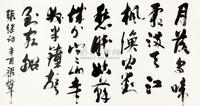 月落烏啼
霜滿天江
楓漁火對
愁眠姑蘇
城外寒山寺
夜半鐘聲
到客船
張繼詩